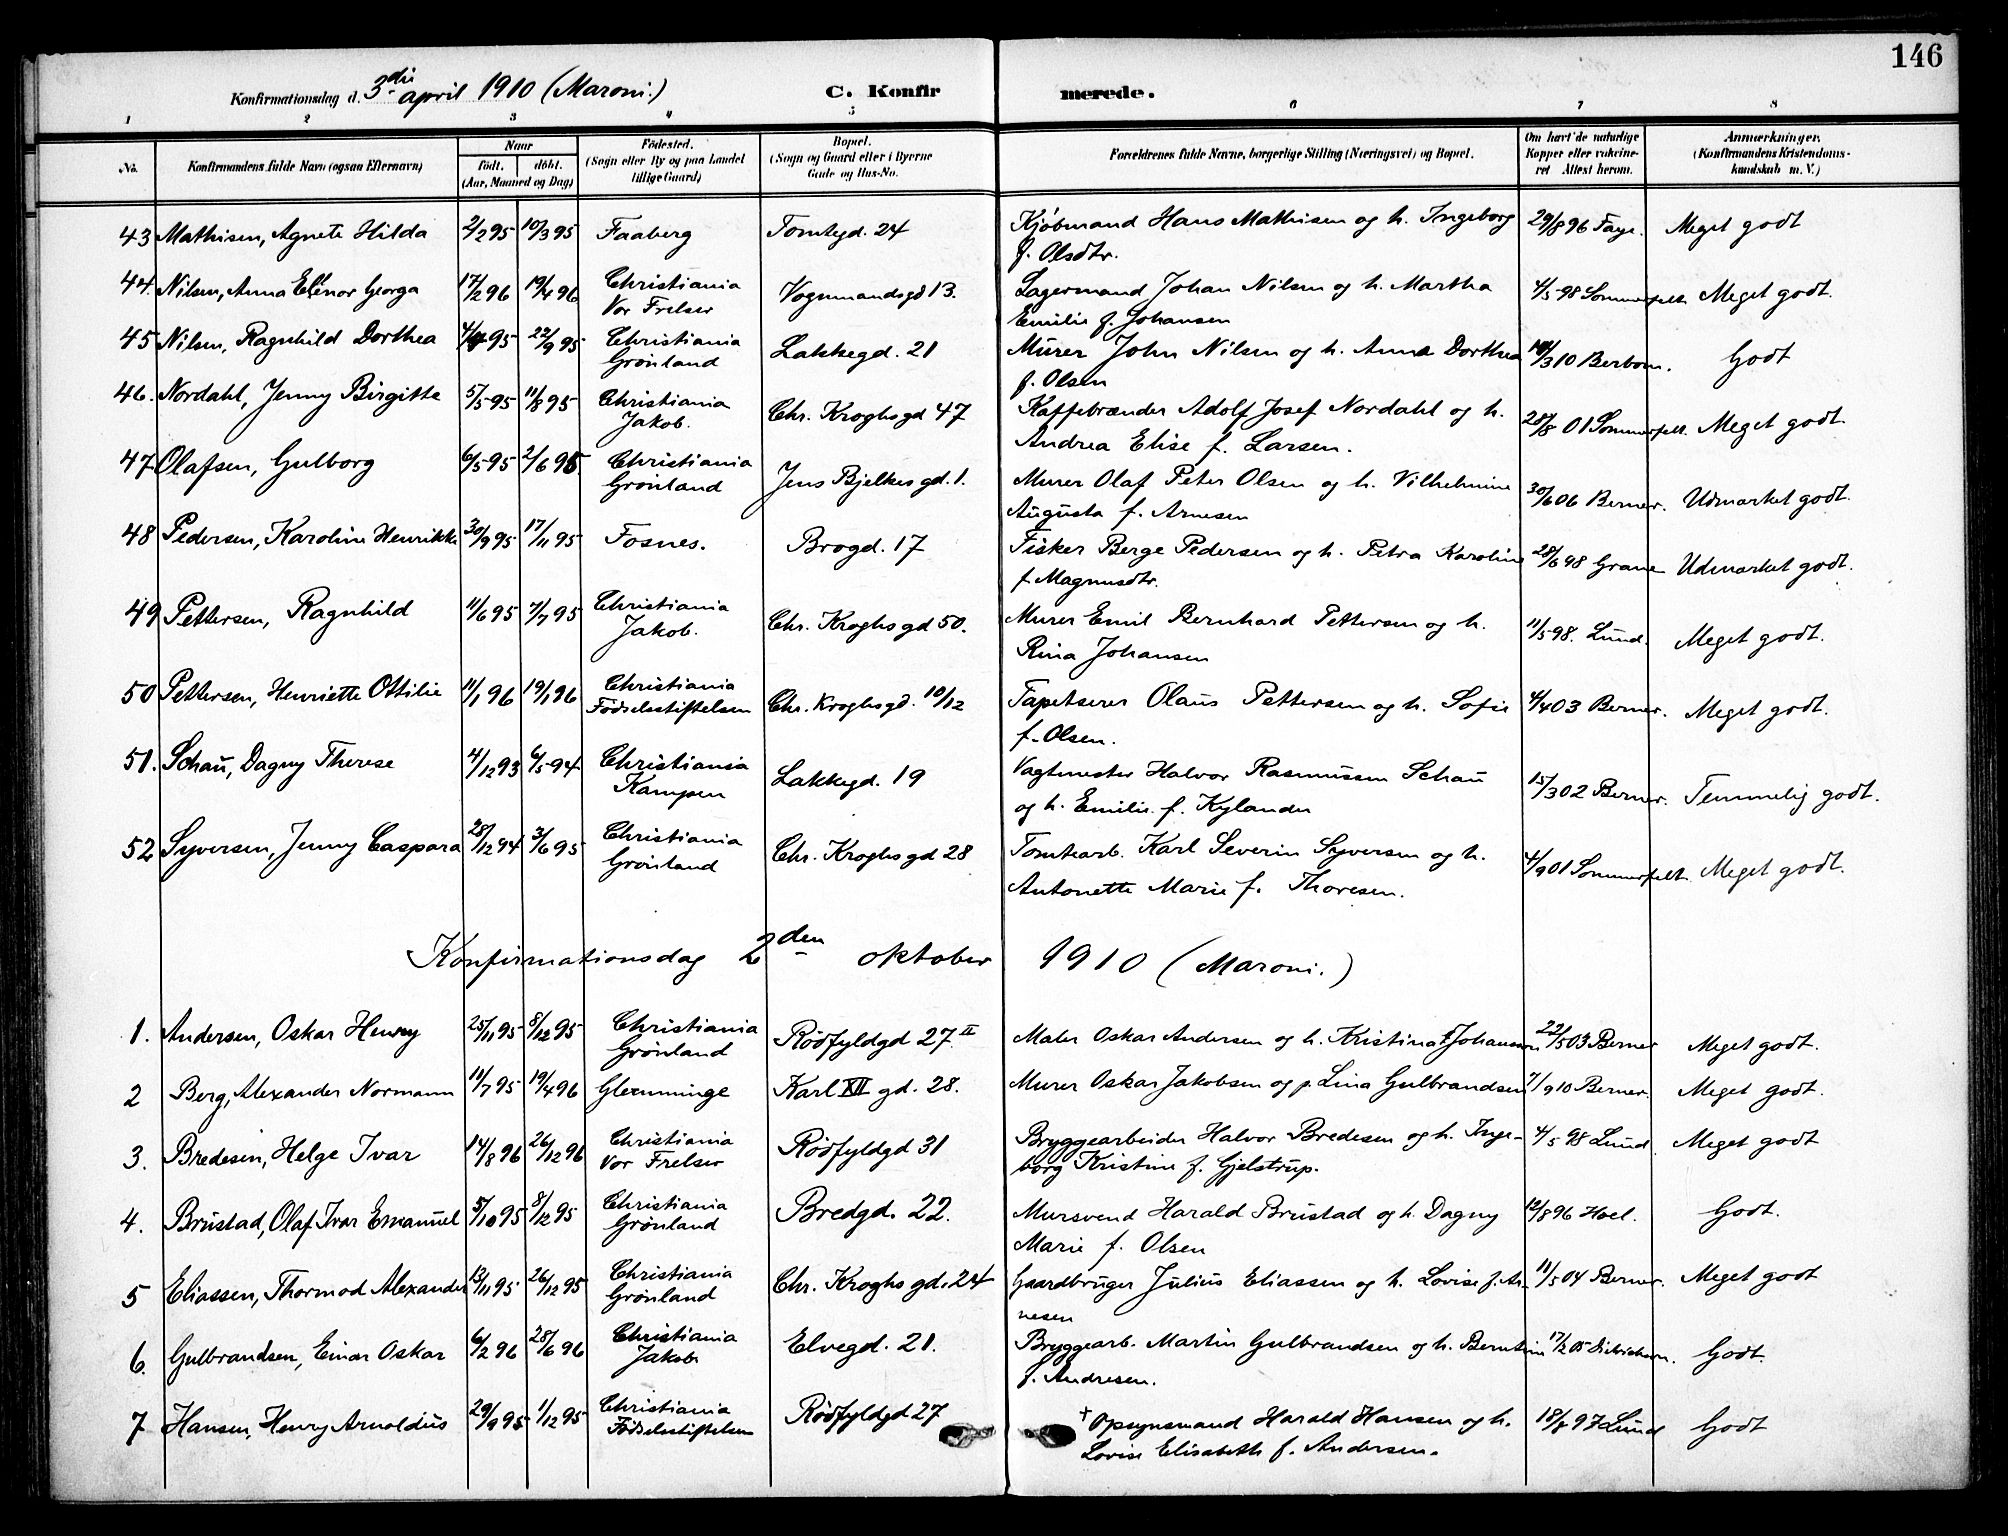 146
Konfirmationsdag d. 3die april 1910 (Maroni.) C. Konfirmerede.
1 2 3 4 5 6 7 8
No. Konfirmandens fulde Navn (ogsaa Efternavn) Naar født. døbt. (Aar, Maaned og Dag) Fødested. (Sogn eller By og paa Landet tillige Gaard) Bopæl. (Sogn og Gaard eller i Byerne Gade og Hus-No. Forældrenes fulde Navne, borgerlige Stilling (Næringsvei) og Bopæl. Om havt de naturlige Kopper eller vaccineret Attest herom. Anmærkninger. (Konfirmandens Kristendomskundskab m. V.)
43 Mathisen, Agnete Hilda 2/2 95 10/3 95 Faaberg Tomtegd. 24 Kjøbmand Hans Mathisen og h. Ingeborg 29/8 96 Faye. Meget godt
f. Olsdtr.
44. Nilsen, Anna Ellenor Georga 17/2 96 19/4 96 Christiania Vognmandsgd 13. Lagermand Johan Nilsen og h. Martha 4/5 98 Sommerfelt Meget godt.
Vor Frelser Emilie f. Johansen
45 Nilsen, Ragnhild Dorthea 95 22/9 95 Christiania Lakkegd. 21 Murer John Nilsen og h. Anna Dorthea /3 10 Godt
Grönland f. Olsen
46. Nordahl, Jenny Birgitte 5/5 95 11/8 95 Christiania Chr. Kroghsgd 47 Kaffebrænder Adolf Josef Nordahl og h. 28/8 01 Sommerfelt. Meget godt.
Jakob. Andrea Elise f. Larsen.
47 Olafsen, Gulborg 6/5 95 2/6 95. Christiania Jens Bjelkesgd. 1. Murer Olaf Peter Olsen og h. Vilhelmine 30/6 06 Berner. Udmærket godt.
Grönland Augusta f. Arnesen
48 Pedersen, Karoline Henrikke 30/9 95 17/11 95 Fosnes. Brogd. 17 Fisker Berge Pedersen og h. Petra Karoline 28/6 98 Grane Udmærket godt.
f. Magnusdtr.
49 Pettersen, Ragnhild 11/6 95 7/7 95 Christiania Chr. Kroghsgd 50. Murer Emil Bernhard Pettersen og h. 11/5 98. Lund. Meget godt.
Jakob. Rina Johansen
50 Pettersen, Henriette Ottilie 11/1 96 19/1 96 Christiania Chr. Kroghsgd. 10/12 Tapetserer Olaus Pettersen og h. Sofie 4/4 03 Berner. Meget godt.
Födselsstiftelsen f. Olsen.
51. Schau, Dagny Therese 4/12 93 6/5 94 Christiania Lakkegd. 19 Vagtmester Halvor Rasmussen Schau 15/3 02 Berner. Temmelig godt.
Kampen og h. Emilie f. Kylander
52 Syversen, Jenny Caspara 28/12 94 3/6 95 Christiania Chr. Kroghsgd 28 Tomtearb. Karl Severin Syversen og h. 4/9 01 Sommerfelt. Meget godt.
Grönland Antonette Marie f. Thoresen.
Konfirmationsdag 2den oktober 1910 (Maroni.)
1. Andersen, Oskar Henry 25/11 95 8/12 95 Christiania Rödfyldgd 27 II Maler Oskar Andersen og h. Kristina f. Johansson 22/5 03 Berner Meget godt.
Grönland
2 Berg, Alexander Normann 11/7 95 19/4 96 Glemminge Karl XII gd. 28. Murer Oskar Jakobsen og p. Lina Gulbrandsen 7/9 10 Berner. Meget godt.
3. Bredesen, Helge Ivar 14/8 96 26/12 96 Christiania Rödfyldgd 31 Bryggearbeider Halvor Bredesen og h. Inge- 4/5 98 Lund. Meget godt
Vor Frelser borg Kristine f. Gjelstrup.
4. Brustad, Olaf Ivar Emanuel 5/10 95 8/12 95 Christiania Bredgd. 22. Mursvend Harald Brustad og h. Dagny 12/8 96 Hoel. Godt.
Grönland Marie f. Olsen
5 Eliassen, Thormod Alexander 13/11 95 26/12 95 Christiania Chr. Kroghsgd. 24 Gaardbruger Julius Eliassen og h. Lovise f. Ar- 11/5 04 Berner. Meget godt
Grönland nesen
6. Gulbrandsen, Einar Oskar 6/2 96 28/6 96 Christiania Elvegd. 21. Bryggearb. Martin Gulbrandsen og h. Berntine 17/2 05 Dietrichson. Godt.
Jakob f. Andresen.
7 Hansen, Henry Arnoldus 29/9 95 1/12 95 Christiania Rödfyldgd 27 † Opsynsmand Harald Hansen og h. 18/8 97 Lund Godt
Födselsstiftelsen Lovise Elisabeth f. Andersen.